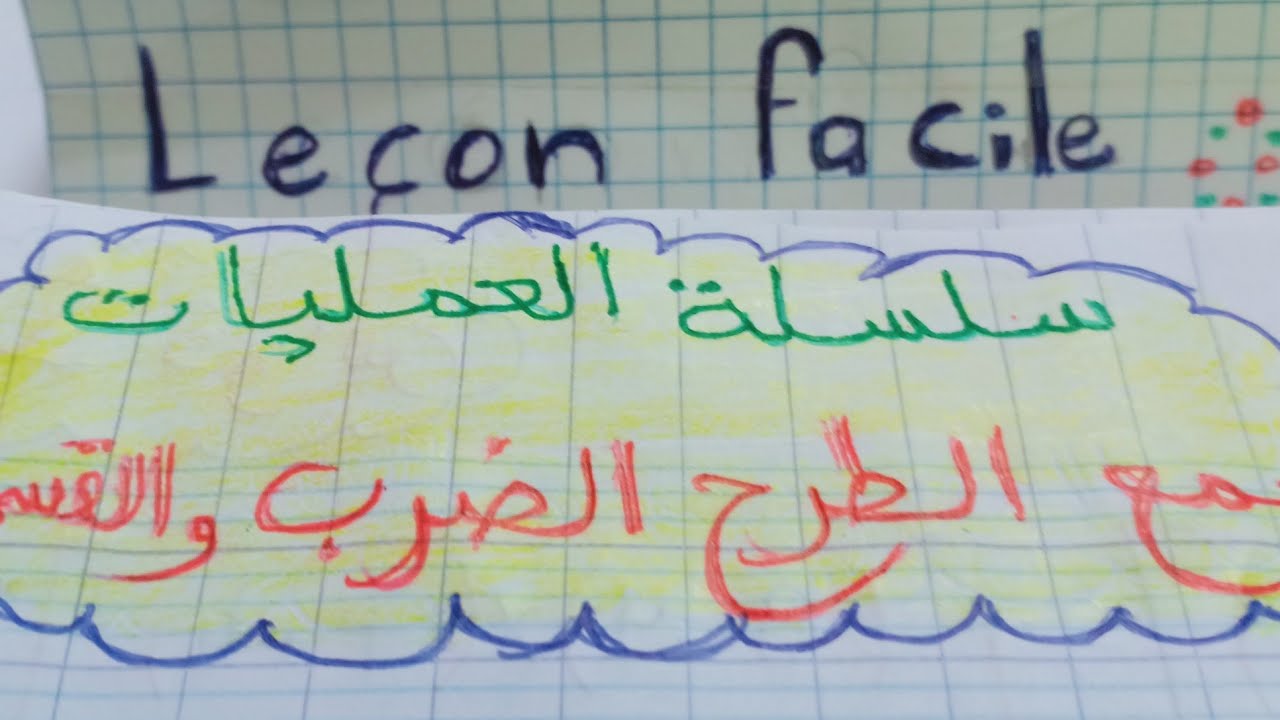 Leçon facile
سلسلة العمليات
الطرح الضرب و